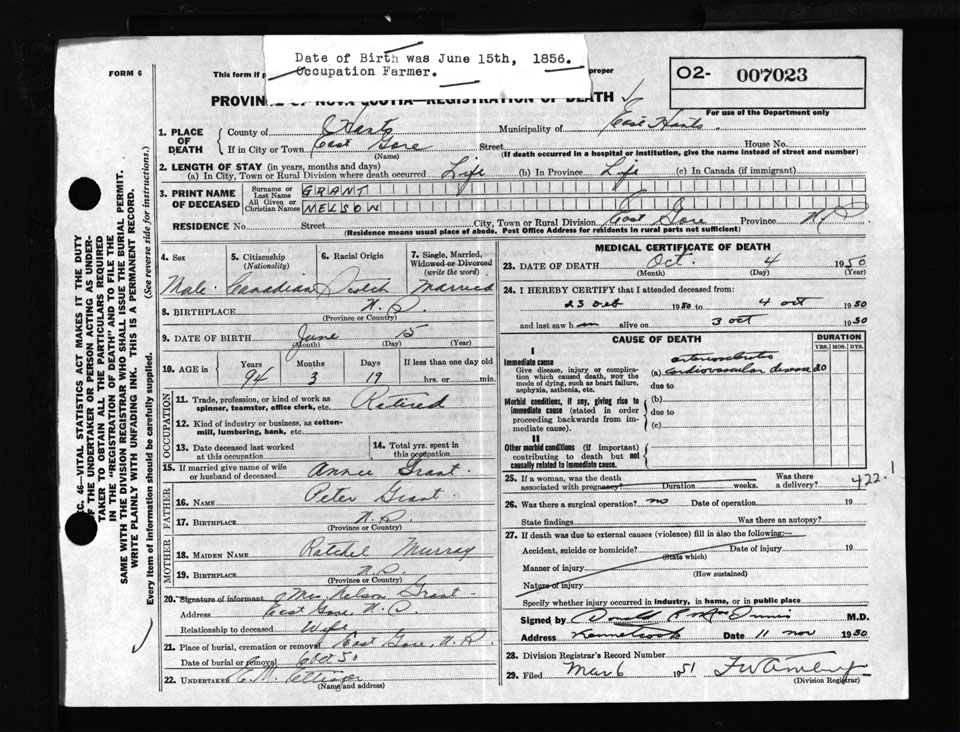 Date of Birth was June 15th, 1856.
Occupation Farmer.
FORM 6
This form if p
proper
O2- 007023
For use of the Department only
PROVINCE OF NOVA SCOTIA—REGISTRATION OF DEATH
1. PLACE OF DEATH
County of Hants
Municipality of East Hants
If in City or Town East Gore Street House No.
(Name) (If death occurred in a hospital or institution, give the name instead of street and number)
2. LENGTH OF STAY (in years, months and days)
(a) In City, Town or Rural Division where death occurred Life (b) In Province Life (c) In Canada (if immigrant)
3. PRINT NAME OF DECEASED
Surname or Last Name GRANT
All Given or Christian Names NELSON
RESIDENCE No. Street City, Town or Rural Division East Gore Province N.S.
(Residence means usual place of abode. Post Office Address for residents in rural parts not sufficient)
4. Sex
Male
5. Citizenship (Nationality)
Canadian
6. Racial Origin
Scotch
7. Single, Married, Widowed or Divorced (write the word)
Married
8. BIRTHPLACE N.S.
(Province or Country)
9. DATE OF BIRTH June 15
(Month) (Day) (Year)
10. AGE in Years Months Days If less than one day old
94 3 19 hrs. or min.
OCCUPATION
11. Trade, profession, or kind of work as spinner, teamster, office clerk, etc. Retired
12. Kind of industry or business, as cotton-mill, lumbering, bank, etc.
13. Date deceased last worked at this occupation
14. Total yrs. spent in this occupation
15. If married give name of wife or husband of deceased Annie Grant
FATHER
16. NAME Peter Grant
17. BIRTHPLACE N.S.
(Province or Country)
MOTHER
18. MAIDEN NAME Ratchel Murray
19. BIRTHPLACE N.S.
(Province or Country)
20. Signature of informant Mrs Nelson Grant
Address East Gore, N.S
Relationship to deceased Wife
21. Place of burial, cremation or removal East Gore, N.S.
Date of burial or removal
22. UNDERTAKER C. M. Ettinger
(Name and address)
MEDICAL CERTIFICATE OF DEATH
23. DATE OF DEATH Oct. 4 1950
(Month) (Day) (Year)
24. I HEREBY CERTIFY that I attended deceased from:
23 1950 to 4 oct 1950
and last saw him alive on 3 oct 1950
CAUSE OF DEATH
DURATION
YRS. MOS. DYS.
I
Immediate cause
Give disease, injury or complication which caused death, NOT the mode of dying, such as heart failure, asphyxia, asthenia, etc.
(a) cardiovascular disease 20
due to
Morbid conditions, if any, giving rise to immediate cause (stated in order proceeding backwards from immediate cause).
(b)
due to
(c)
II
Other morbid conditions (if important) contributing to death but not causally related to immediate cause.
25. If a woman, was the death associated with pregnancy? Duration weeks. Was there a delivery?
422.1
26. Was there a surgical operation? no Date of operation. 19
State findings Was there an autopsy?
27. If death was due to external causes (violence) fill in also the following:—
Accident, suicide or homicide? Date of injury 19
(State which)
Manner of injury
(How sustained)
Nature of injury
Specify whether injury occurred in industry, in home, or in public place
Signed by M.D.
Address Kennetcook Date 11 nov 1950
28. Division Registrar's Record Number
29. Filed Mar 6 1951
(Division Registrar)
SEC. 46—VITAL STATISTICS ACT MAKES IT THE DUTY OF THE UNDERTAKER OR PERSON ACTING AS UNDERTAKER TO OBTAIN ALL THE PARTICULARS REQUIRED IN THE "REGISTRATION OF DEATH" AND TO FILE THE SAME WITH THE DIVISION REGISTRAR WHO SHALL ISSUE THE BURIAL PERMIT.
WRITE PLAINLY WITH UNFADING INK. THIS IS A PERMANENT RECORD.
Every item of information should be carefully supplied. (See reverse side for instructions.)